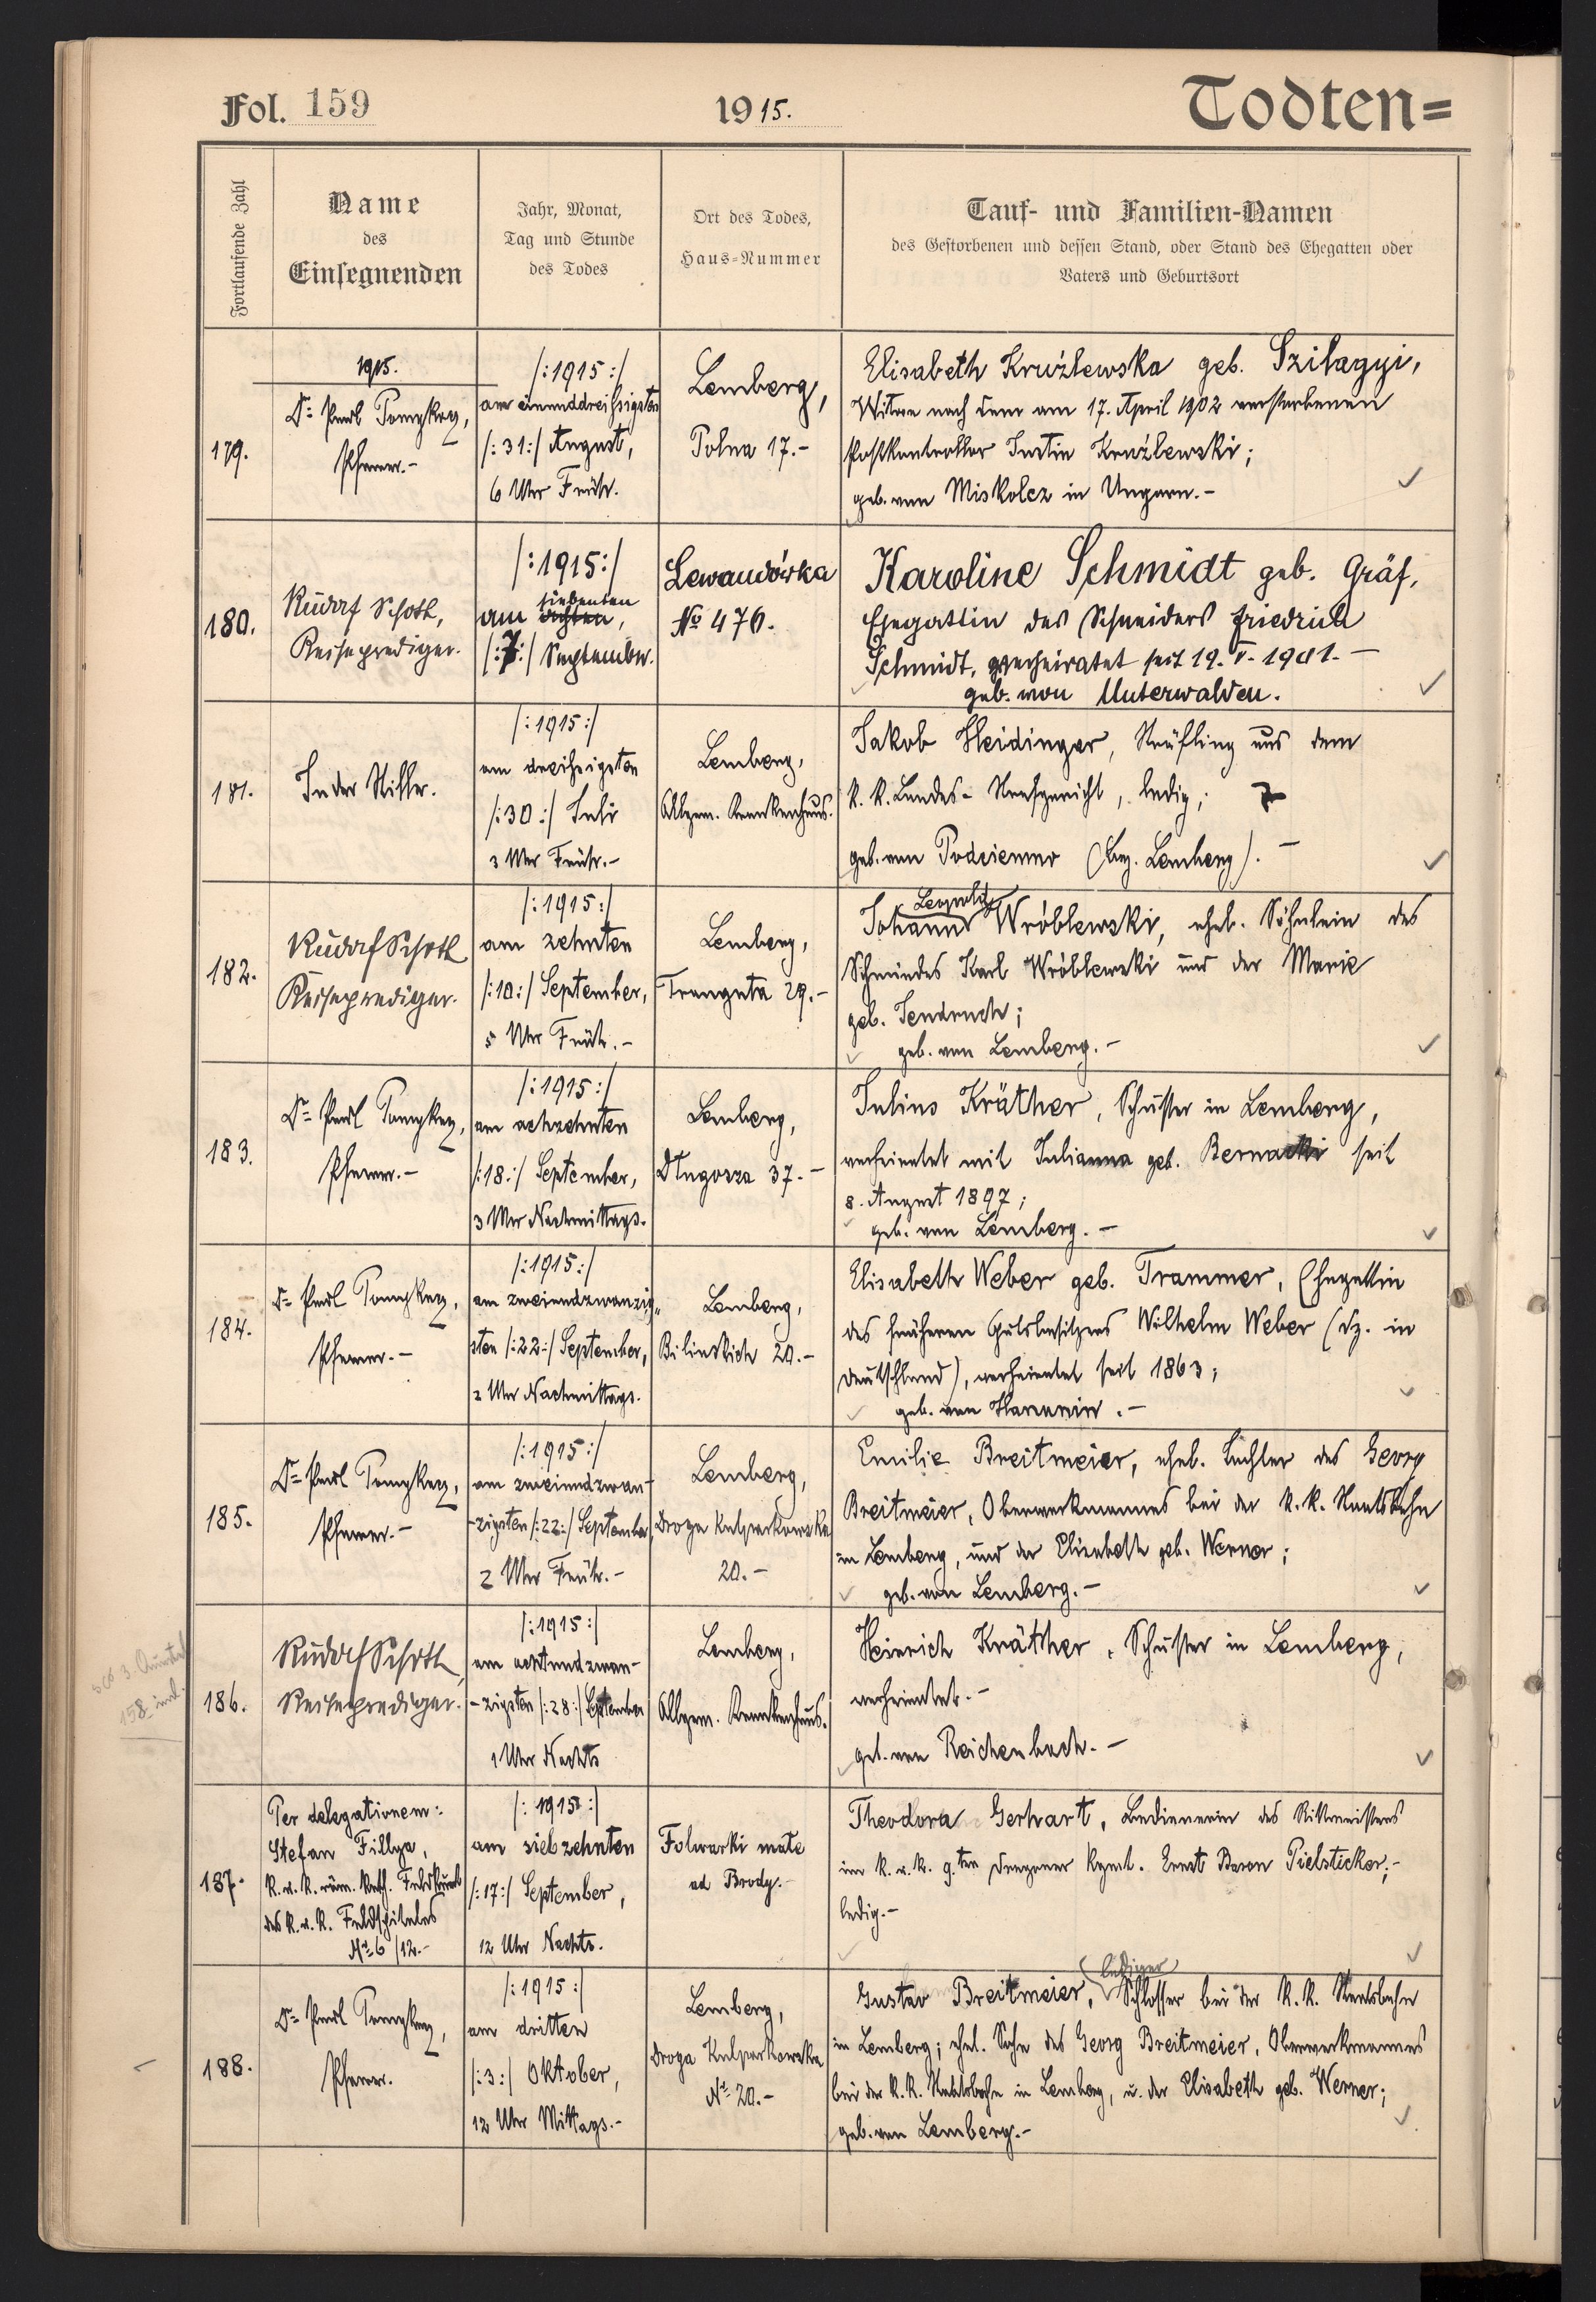 Fol. 159
1915.
Todten=
Fortlaufende Zahl
Name
des
Einsegnenden
Jahr, Monat,
Tag und Stunde
des Todes
Ort des Todes,
Haus-Nummer
Tauf- und Familien-Namen
des Gestorbenen und dessen Stand, oder Stand des Ehegatten oder
Vaters und Geburtsort
179.
1915.
Dr Paul
Pfarrer.-
/:1915:/
am einunddreißigsten
/:31:/ August,
6 Uhr Früh.
Lemberg,
Polna 17.-
Elisabeth Kruźlewska geb. Szilagyi,
Witwe nach dem am 17. April 1902 verstorbenen
Postkontrollor Justin Kruźlewski;
geb. von Miskolcz in Ungarn.-
180.
Rudolf Schoth,
Reiseprediger.
/:1915:/
siebenten
am achten,
/:7:/ September.
Lewandówka
No 476.
Karoline Schmidt geb. Gräf,
Ehegattin des Schneiders Friedrich
Schmidt, verheiratet seit 19. V. 1901.-
geb. von Unterwalden.
181.
In der Stille.
/:1915:/
am dreißigsten
/:30:/ Juli
3 Uhr Früh.-
Lemberg,
Allgem. Krankenhaus.
Jakob Heidinger, Sträfling aus dem
k. k. Landes-Strafgericht, ledig;
geb. von (bez. Lemberg).-
182.
Rudolf Schoth
Reiseprediger.
/:1915:/
am zehnten
/:10:/ September,
5 Uhr Früh.-
Lemberg,
Trauguta 29.-
Leopold
Johann Wróblewski, ehel. Söhnlein des
Schmiedes Karl Wróblewski und der Marie
geb. Jendruch;
geb. von Lemberg.-
183.
Dr Paul
Pfarrer.-
/:1915:/
am achzehnten
/:18:/ September,
3 Uhr Nachmittags.
Lemberg,
Długosza 37.-
Julius Kräther, Schuster in Lemberg,
verheiratet mit Julianna geb. Bernacki seit
8. August 1897;
geb. von Lemberg.-
184.
Dr Paul
Pfarrer.-
/:1915:/
am zweiundzwanzig„
sten /:22:/ September,
2 Uhr Nachmittags.
Lemberg,
Bilinskich 20.-
Elisabeth Weber geb. Trammer, Ehegattin
des früheren Gutsbesitzers Wilhelm Weber (dz. in
Deutschland), verheiratet seit 1863;
geb. von
185.
Dr Paul
Pfarrer.-
/:1915:/
am zweiundzwan-
-zigsten /:22:/ September
2 Uhr Früh.-
Lemberg,
Droga Kulparkowska
20.-
Emilie Breitmeier, ehel. Tochter des Georg
Breitmeier, Oberwerkmannes bei der k. k. Staatsbahn
in Lemberg, und der Elisabeth geb. Werner;
geb. von Lemberg.-
158
186.
Rudolf Schoth,
Reiseprediger.
/:1915:/
am achtundzwan-
-zigsten /:28:/ September
1 Uhr Nachts
Lemberg,
Allgem. Krankenhaus.
Heinrich Kräther, Schuster in Lemberg,
verheiratet.-
geb. von Reichenbach.-
187.
Per delegationem:
Stefan Fillya,
k. u. k. röm. kath. Feldkurat
des k. u. k. Feldspitales
No 6/12.-
/:1915:/
am siebzehnten
/:17:/ September,
12 Uhr Nachts.
Folwarki małe
ad Brody.-
Theodora Gerhart, Bedienerin des Rittmeisters
im k. u. k. 9.ten Dragoner Rgmt. Ernst Baron Pielsticker;-
ledig.-
188.
Dr Paul
Pfarrer.
/:1915:/
am dritten
/:3:/ Oktober,
12 Uhr Mittags.-
Lemberg,
Droga Kulparkowska
No 20.-
lediger
Gustav Breitmeier, Schlosser bei der k. k. Staatsbahn
in Lemberg; ehel. Sohn des Georg Breitmeier, Oberwerkmannes
bei der k. k. Staatsbahn in Lemberg, u. der Elisabeth geb. Werner;
geb. von Lemberg.-